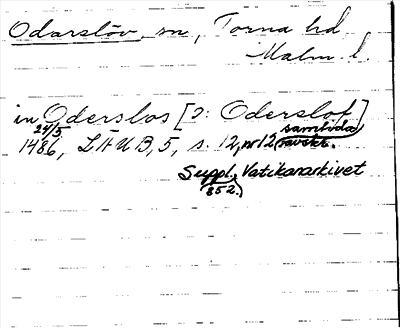 Odarslöv, sn, Torna hd
Malm. l.
in Oderslos [ɔ: Oderslof]
24/5 samtida
1486, LÄUB, 5, s. 12, nr 12 avskr.
Suppl., Vatikanarkivet
852.